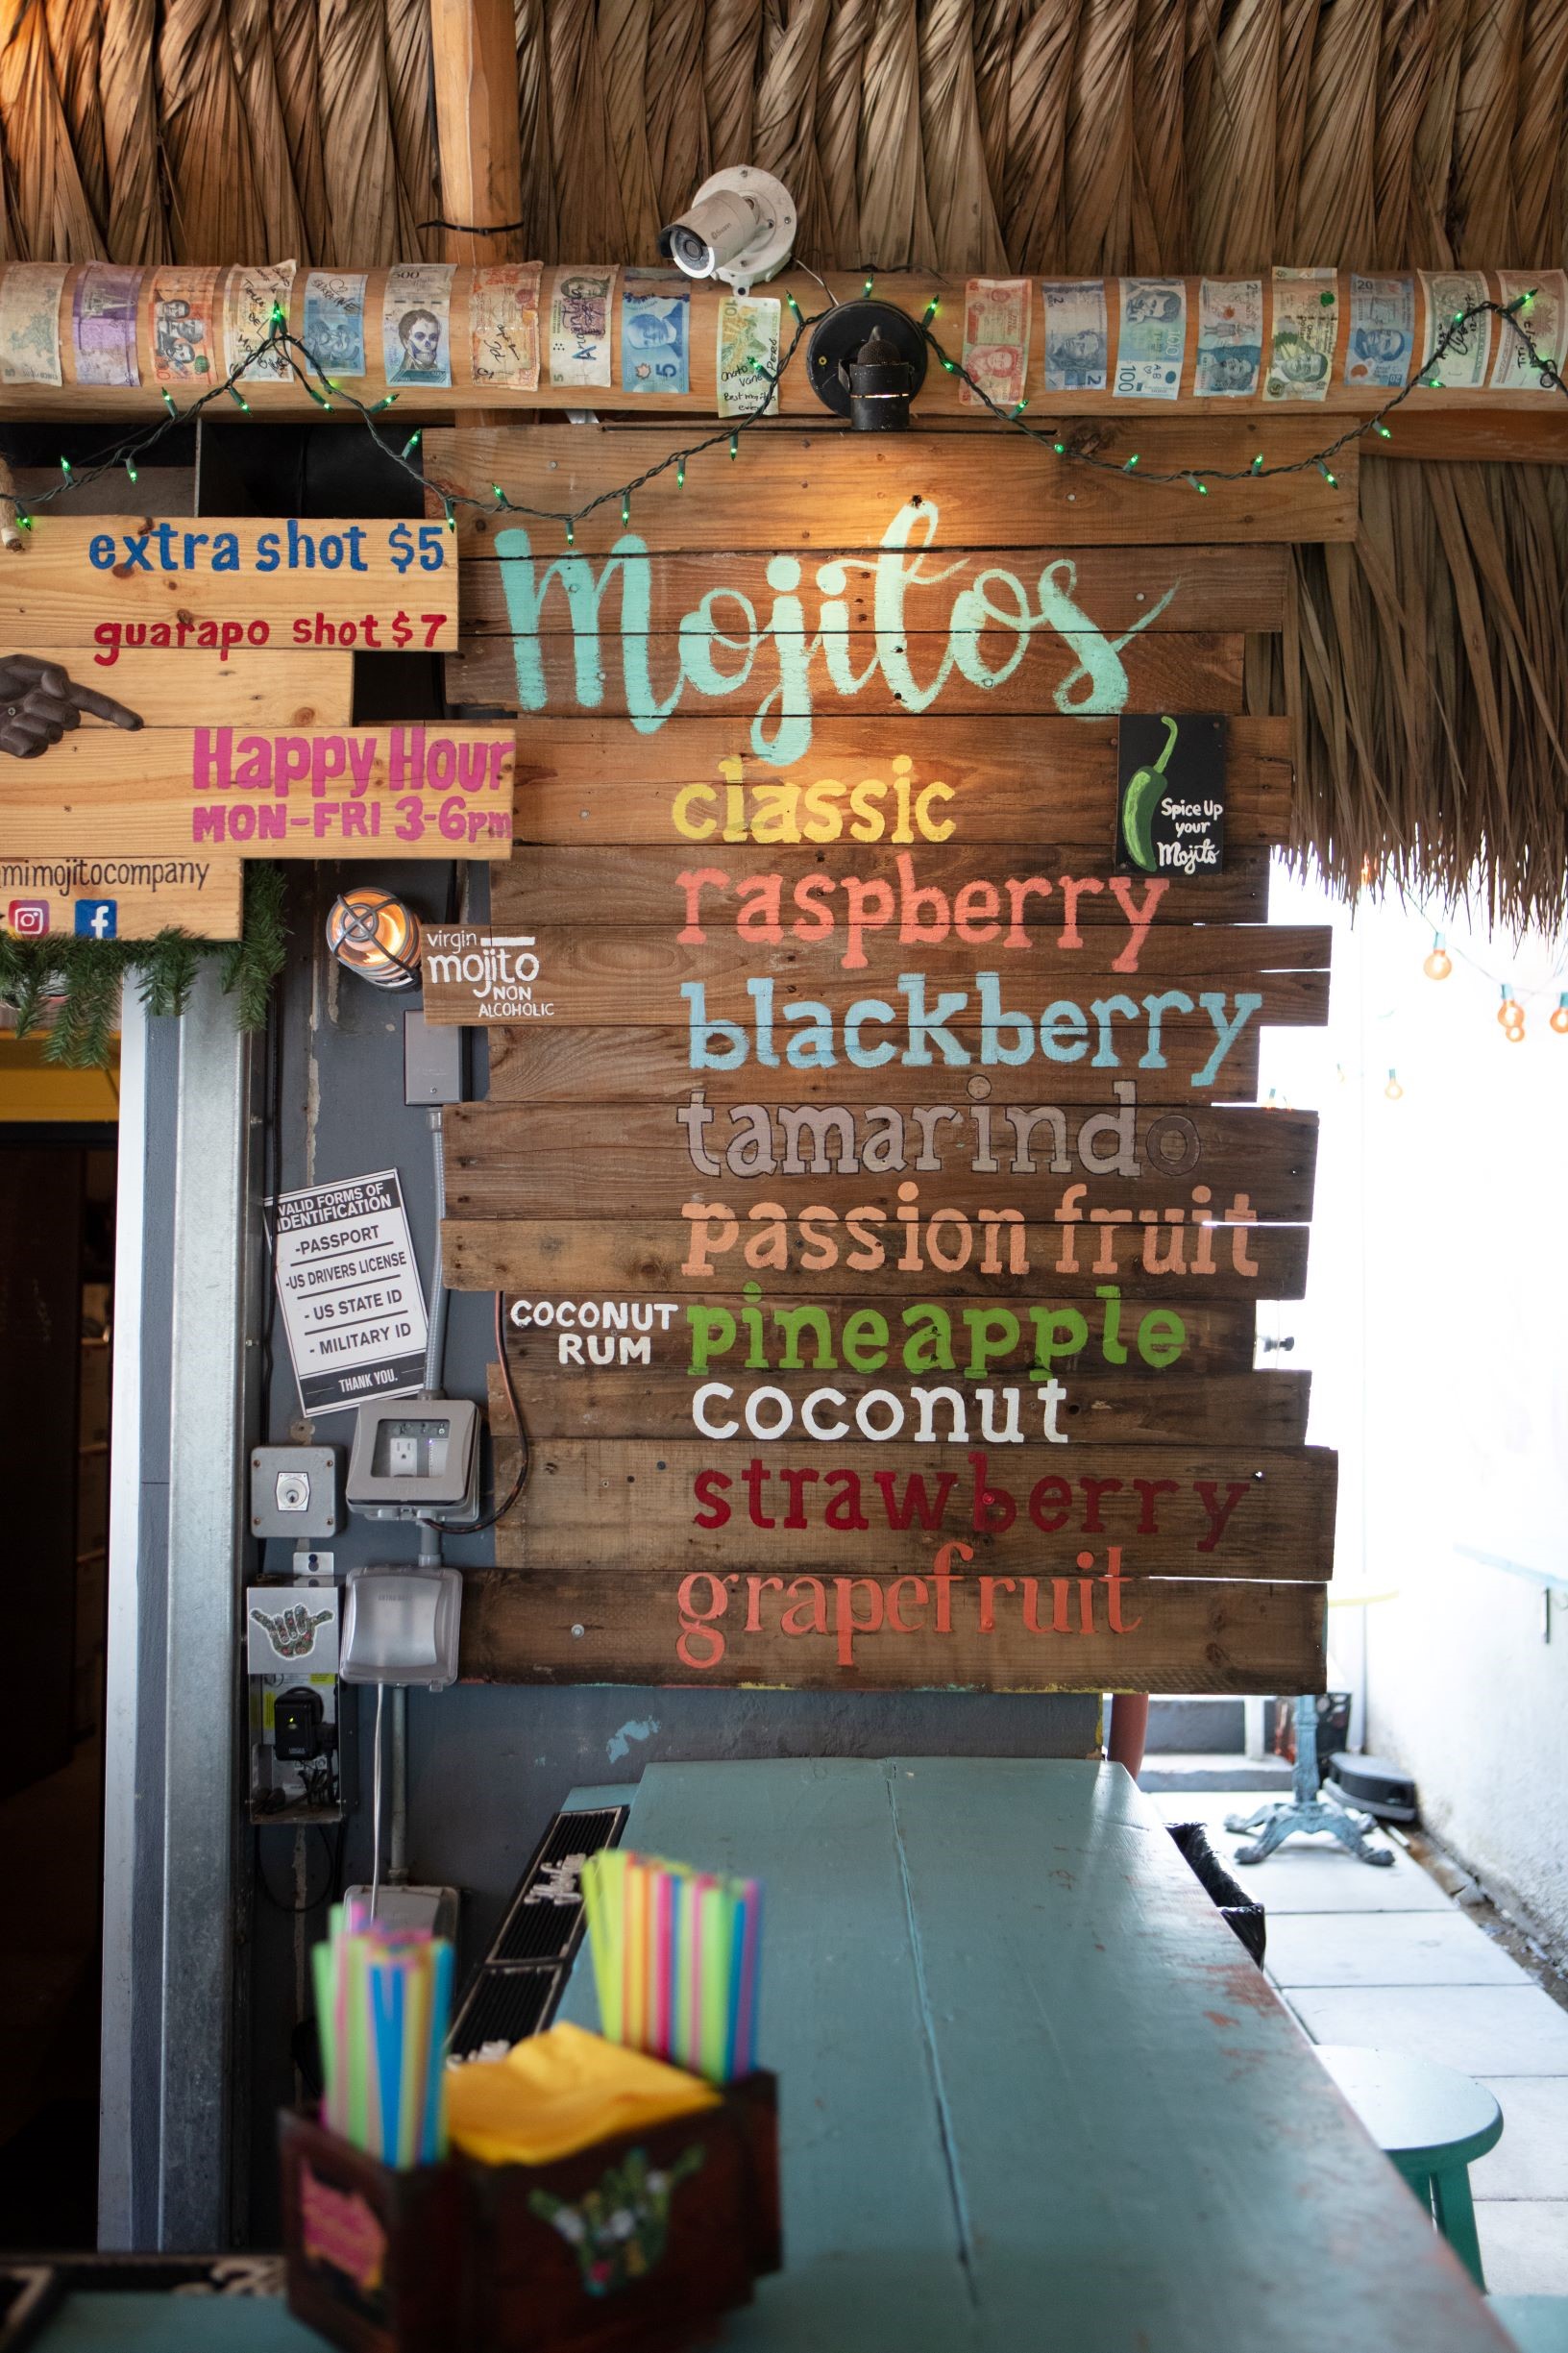 extra shot $5
guarapo shot $7
Happy Hour
MON-FRI 3-6pm
mimojitocompany
Mojitos
classic
raspberry
blackberry
tamarindo
passion fruit
pineapple
coconut
strawberry
grapefruit
Spice Up
your
Mojito
virgin
mojito
NON
ALCOHOLIC
COCONUT
RUM
VALID FORMS OF
IDENTIFICATION
-PASSPORT
-US DRIVERS LICENSE
- US STATE ID
- MILITARY ID
THANK YOU.
500
5
5
2
100
20